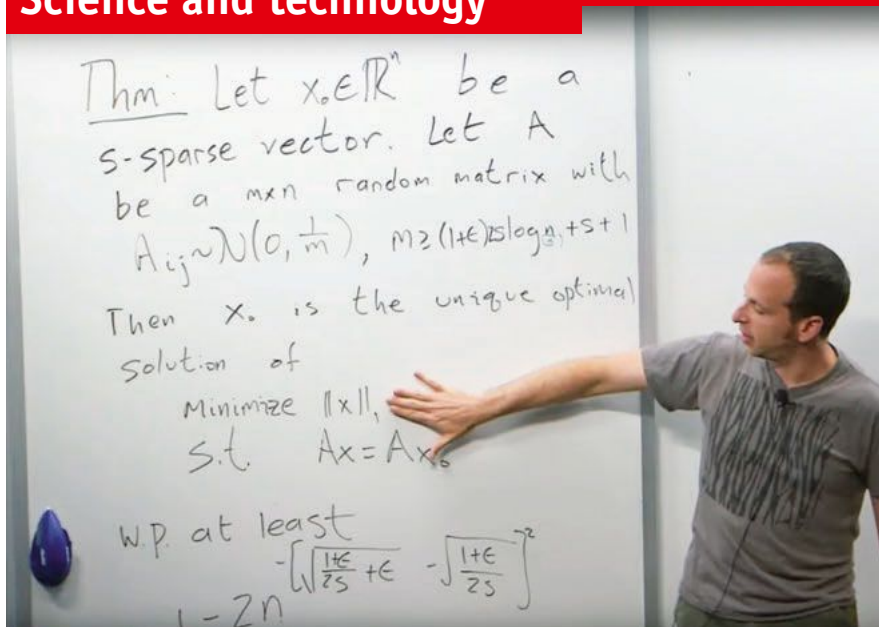 Science and technology
Thm: Let x₀∈ℝⁿ be a
s-sparse vector. Let A
be a m×n random matrix with
Aᵢⱼ~N(0, 1/m), m≥(1+ϵ)2slog n +s+1
Then x₀ is the unique optimal
solution of
Minimize ‖x‖₁
s.t. Ax=Ax₀
W.P. at least
1-2n^-[√((1+ϵ)/2s +ϵ) -√((1+ϵ)/2s)]²